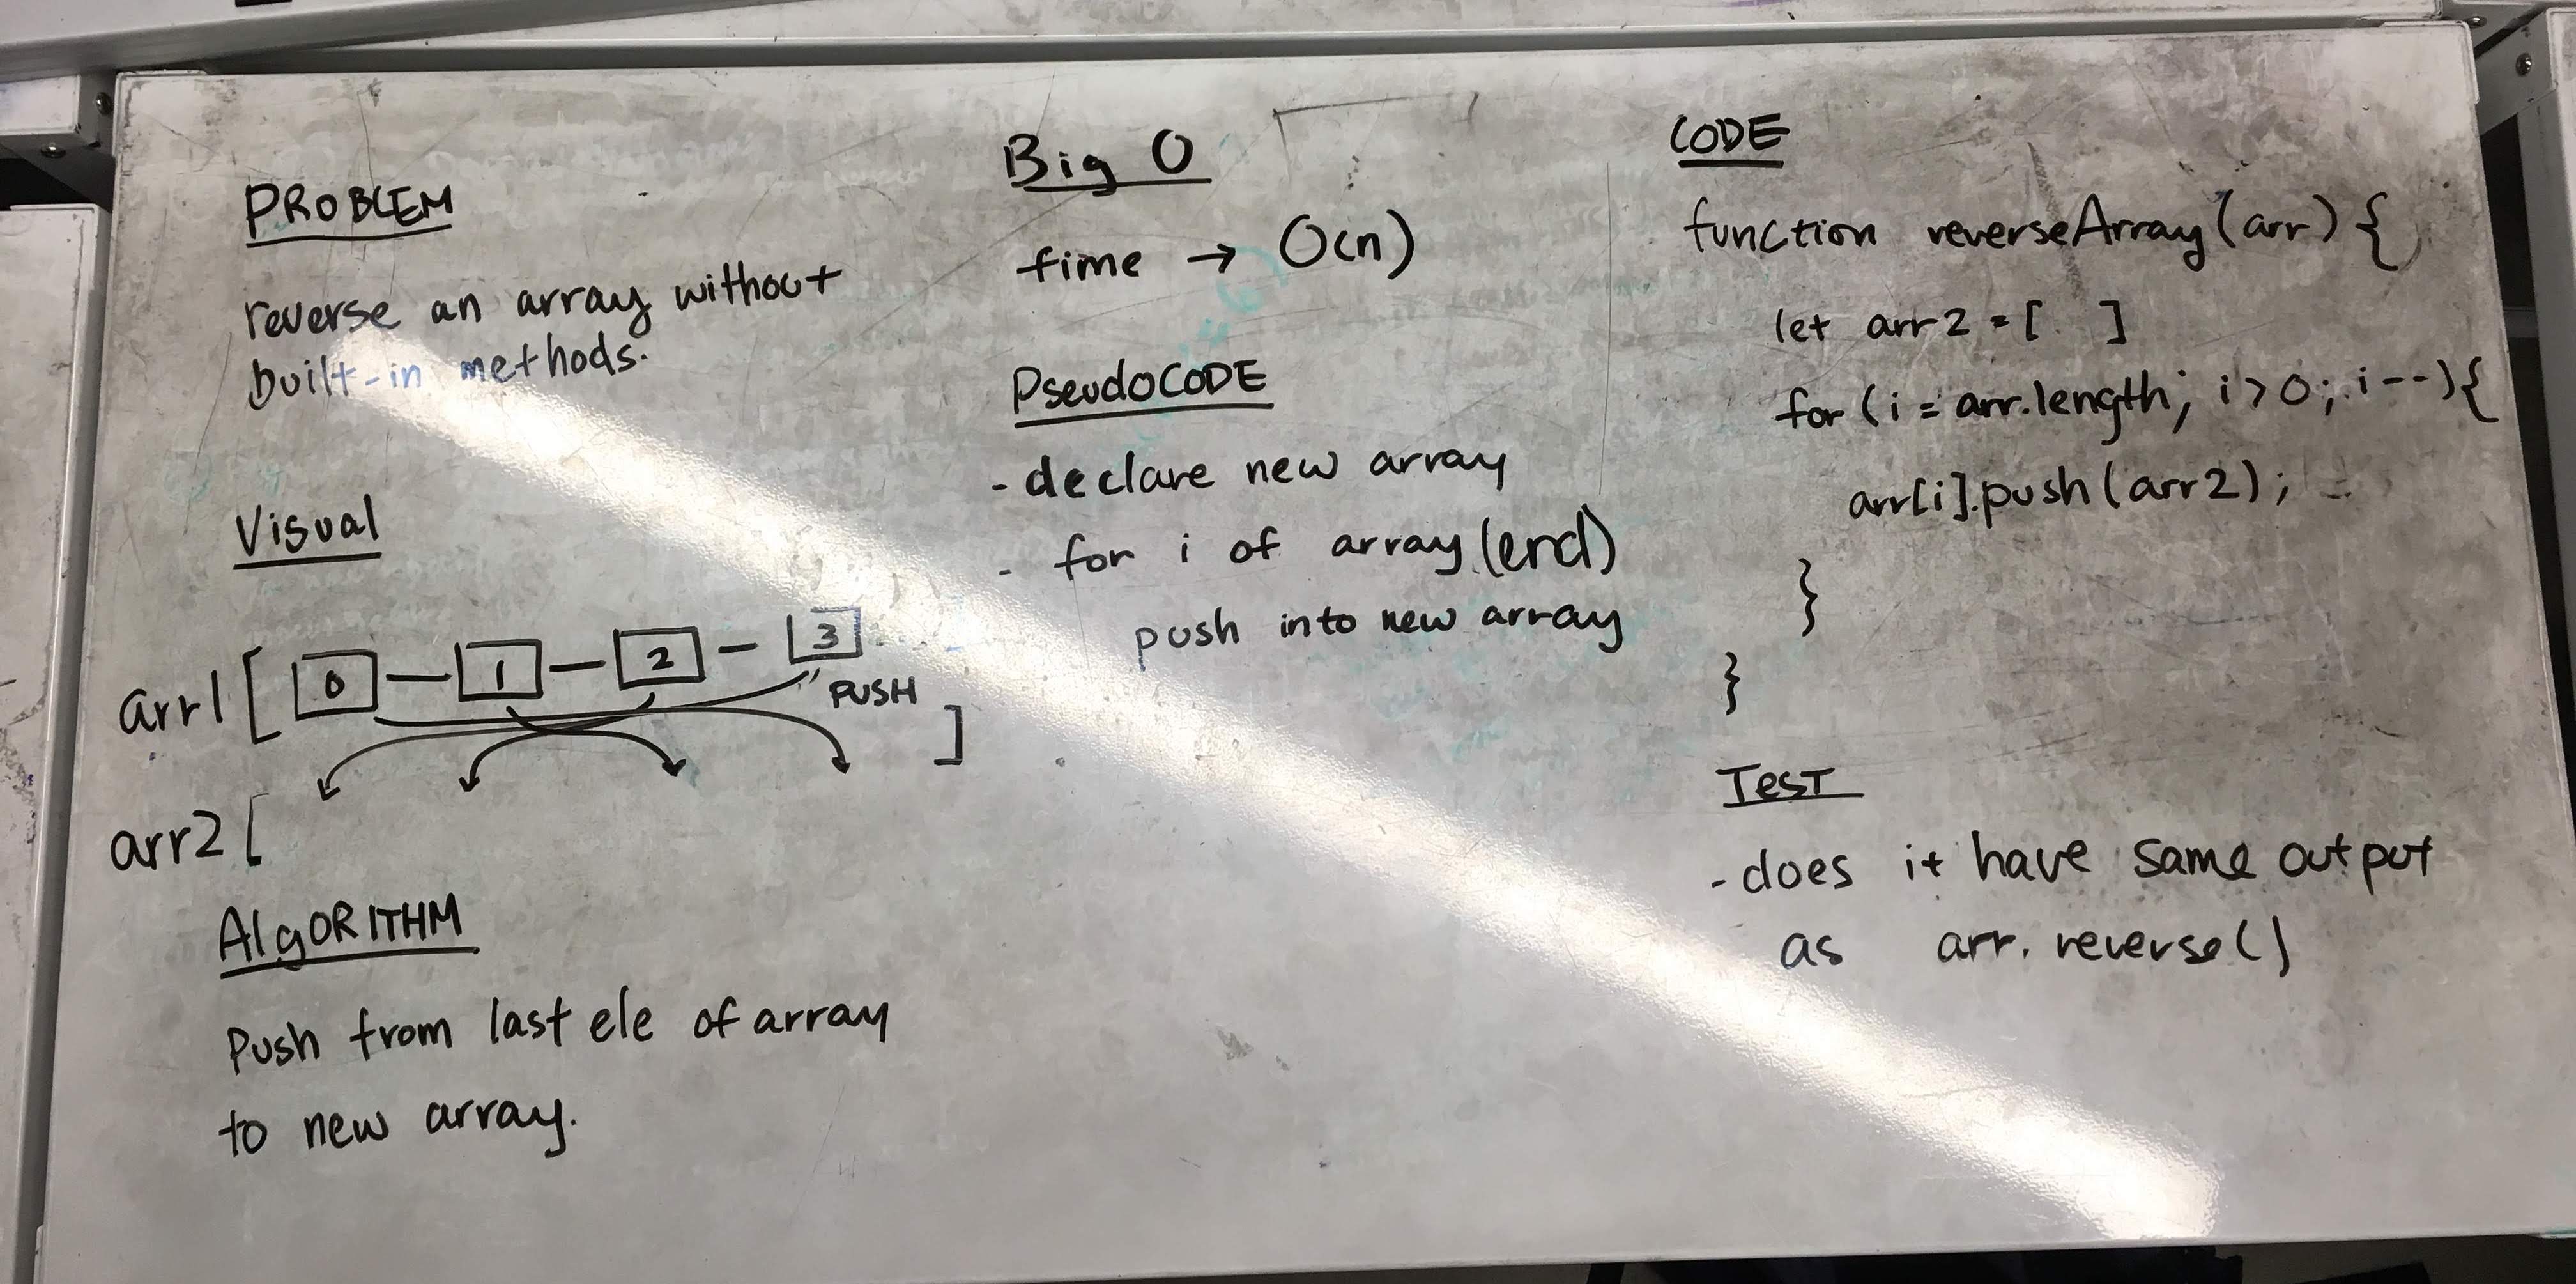 PROBLEM
reverse an array without
built-in methods.
Visual
arr1 [ 0 — 1 — 2 — 3
PUSH
]
arr2 [
AlgORITHM
Push from last ele of array
to new array.
Big O
time → O(n)
PseudoCODE
- declare new array
- for i of array (end)
push into new array
CODE
function reverseArray (arr) {
let arr2 = [ ]
for (i = arr.length; i > 0; i--){
arr[i].push(arr2);
}
}
TesT
- does it have same output
as arr. reverse()